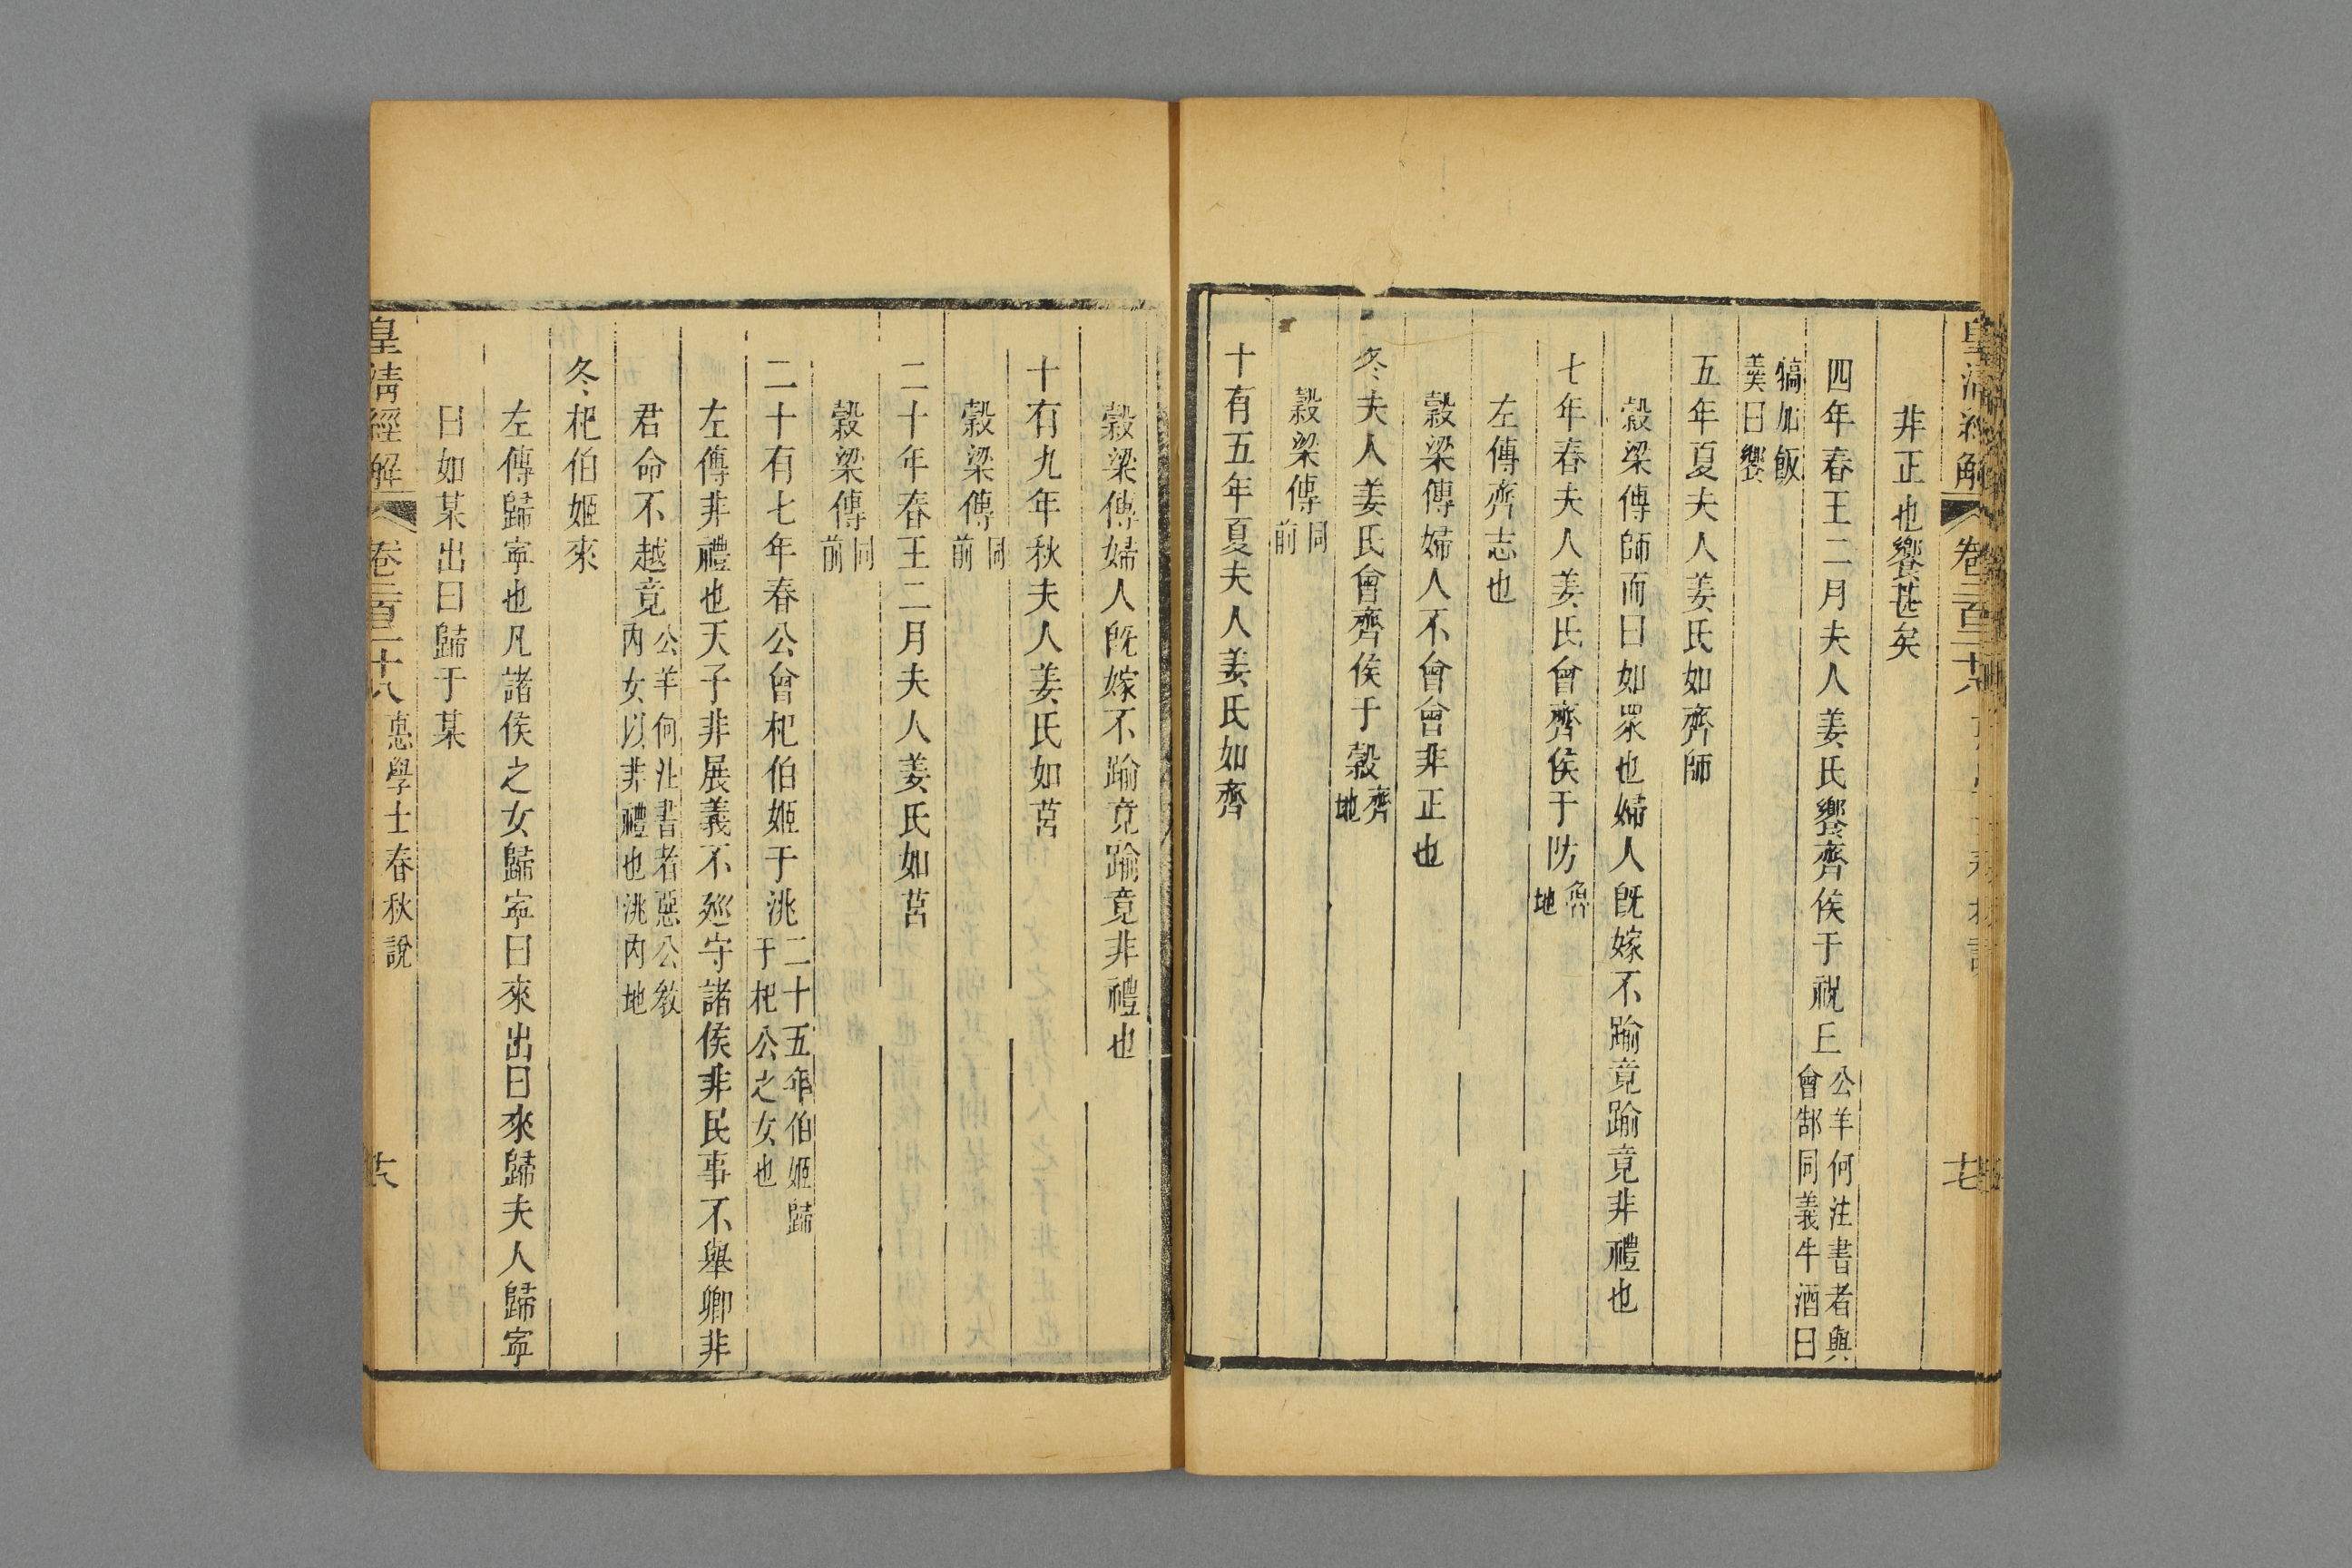 皇清經解 卷二百二十八
七
非正也饗甚矣
四年春王二月夫人姜氏饗齊侯于祝丘 公羊何注書者與會郜同義牛酒曰
犒加飯羹曰饗
五年夏夫人姜氏如齊師
穀梁傳師而曰如眾也婦人既嫁不踰竟踰竟非禮也
七年春夫人姜氏會齊侯于防 魯地
左傳齊志也
穀梁傳婦人不會會非正也
冬夫人姜氏會齊侯于穀 齊地
穀梁傳 同前
十有五年夏夫人姜氏如齊
穀梁傳婦人既嫁不踰竟踰竟非禮也
十有九年秋夫人姜氏如莒
穀梁傳 同前
二十年春王二月夫人姜氏如莒
穀梁傳 同前
二十有七年春公會杞伯姬于洮 二十五年伯姬歸于杞公之女也
左傳非禮也天子非展義不廵守諸侯非民事不舉卿非
君命不越竟 公羊何注書者惡公教內女以非禮也洮內地
冬杞伯姬來
左傳歸寧也凡諸侯之女歸寧曰來出曰來歸夫人歸寧
曰如某出曰歸于某
皇清經解 卷二百二十八 惠學士春秋說